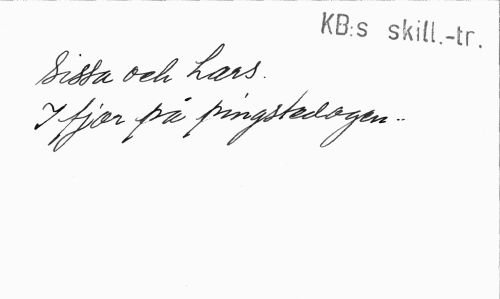 KB:s skill.-tr.
Sissa och Lars.
I fjor på pingstedagen..